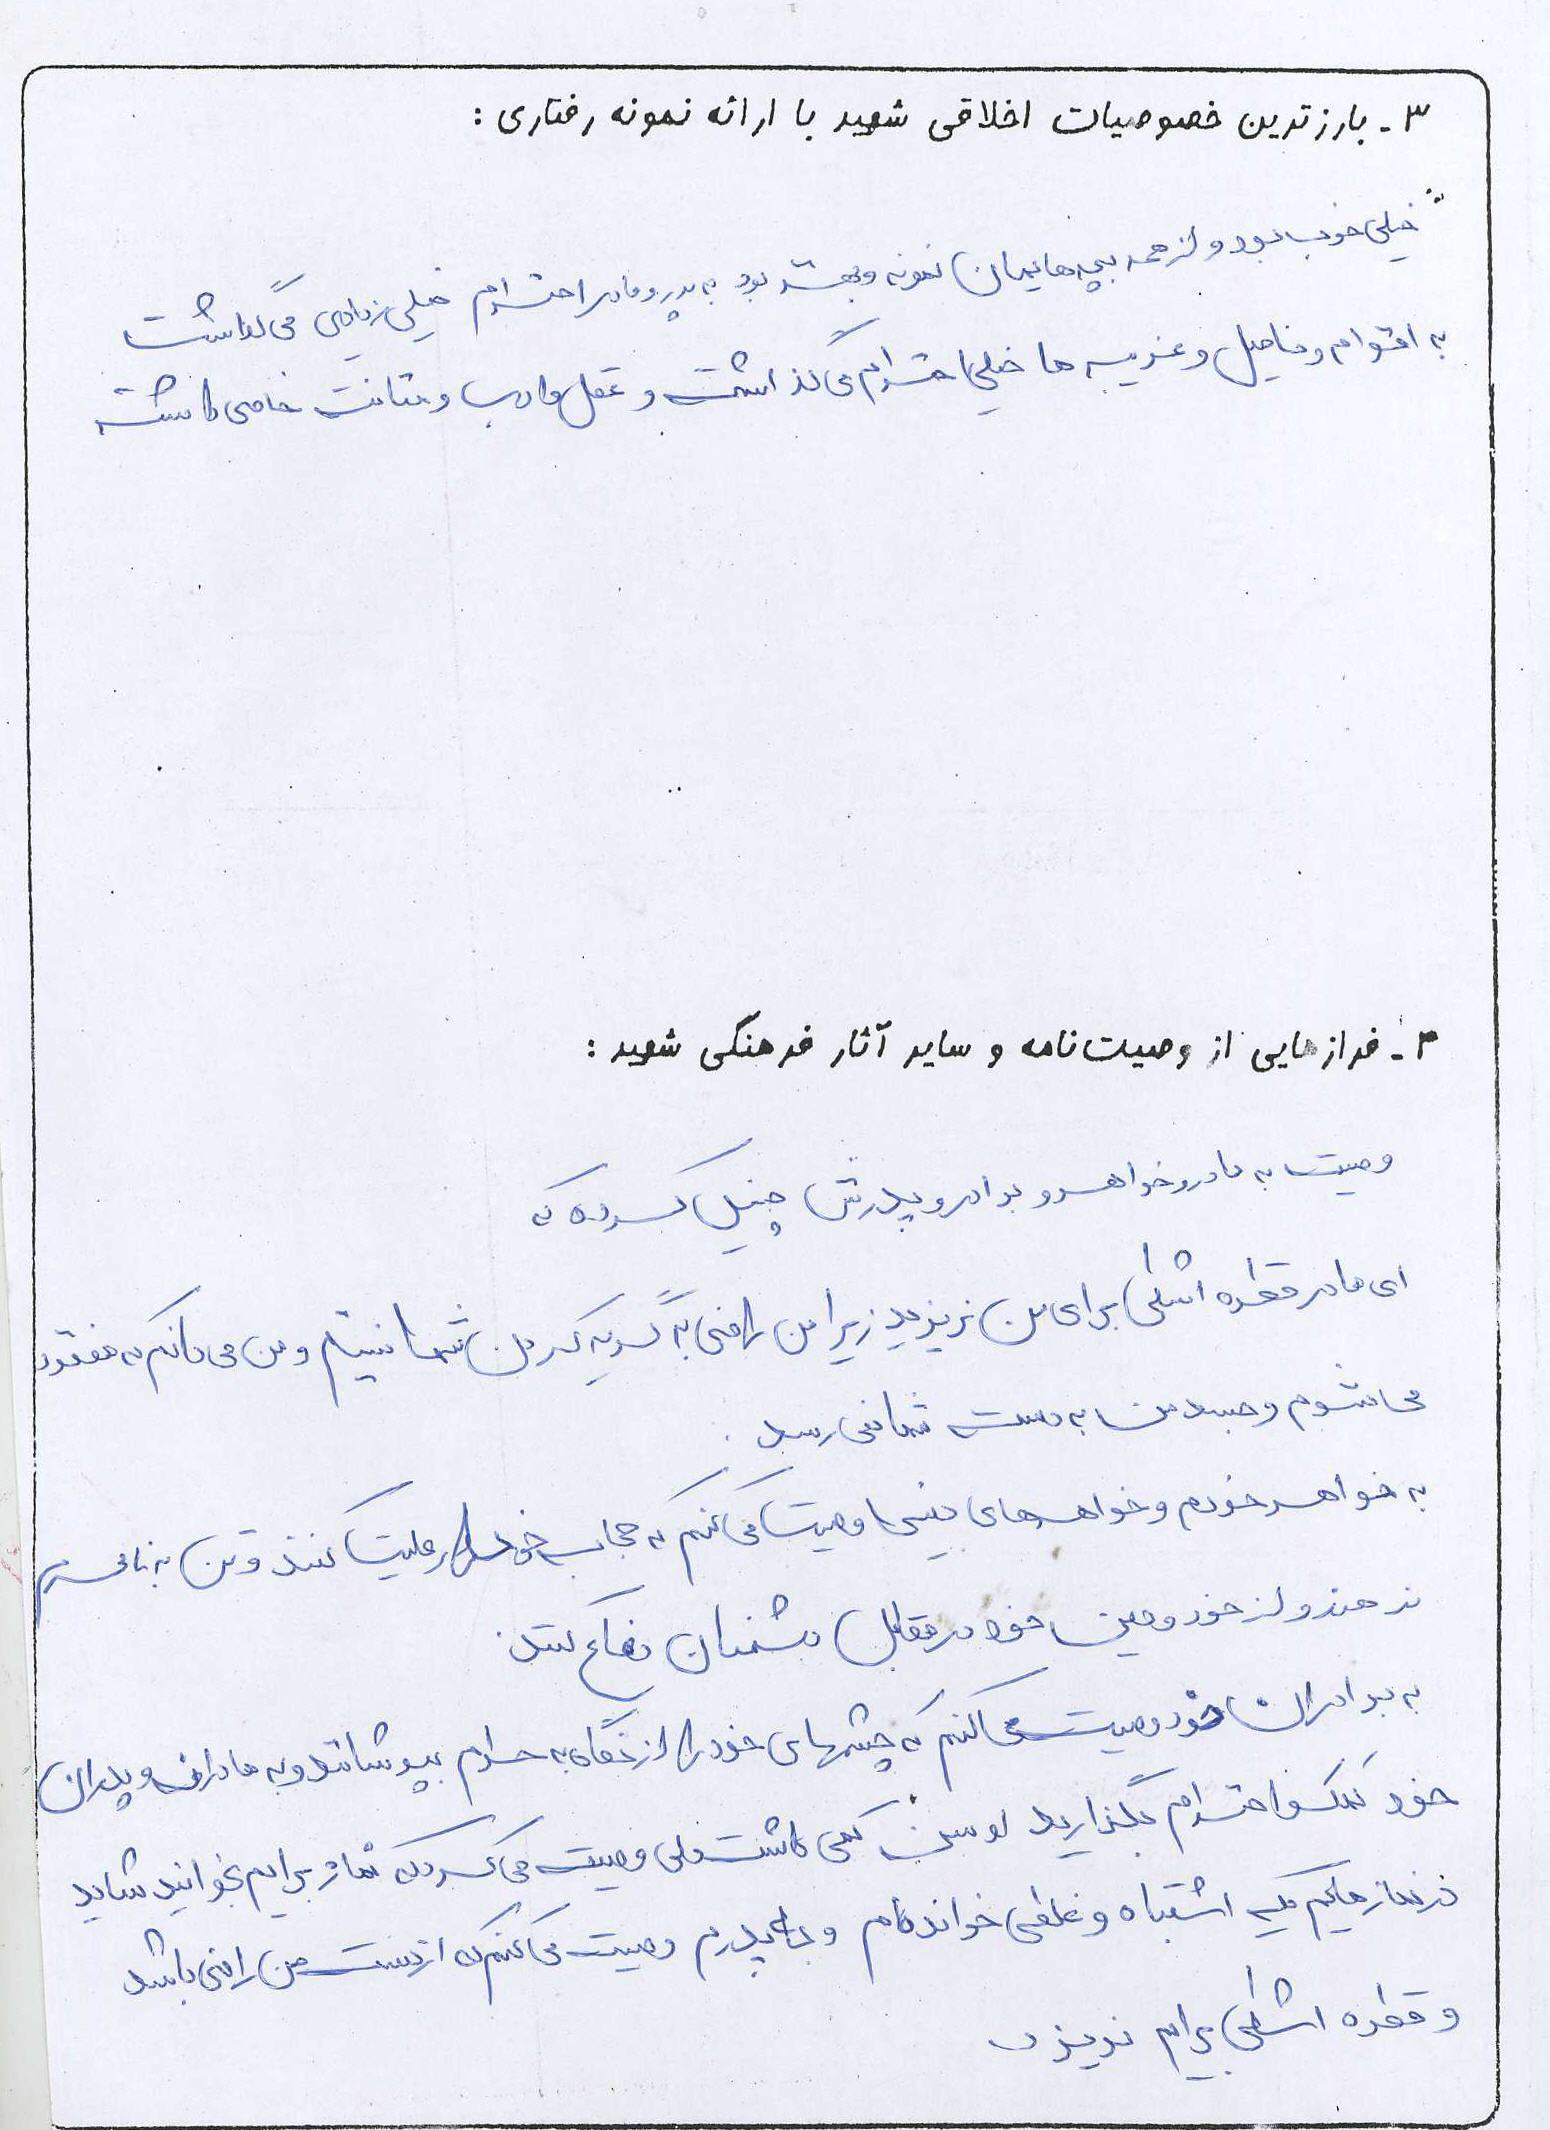 ۳- بارزترین خصوصیات اخلاقی شهید با ارائه نمونه رفتاری :
خیلی خوب بود و از همه بچه هایمان نمونه و بهتر بود به پدر و مادر احترام خیلی زیادی می گذاشت
به اقوام و فامیل و غریبه ها خیلی احترام می گذاشت و عقل و ادب و متانت خاصی داشت
۴- فرازهایی از وصیت‌نامه و سایر آثار فرهنگی شهید :
وصیت به مادر و خواهر و برادر و پدرش چنین کرده که
ای مادر قطره اشکی برای من نریزید زیرا من راضی به گریه کردن شما نیستم و من می دانم که مفقود
می شوم و جسد من به دست شما نمی رسد .
به خواهر خودم و خواهرهای دینی وصیت می کنم که حجاب خود را رعایت کنند و تن به نامحرم
ندهند و از خود و میهن خود در مقابل دشمنان دفاع کنند.
به برادران خود وصیت می کنم که چشمهای خود را از نگاه به حرام بپوشانند و به مادران و پدران
خود کمک و احترام بگذارید او سن کمی داشت ولی وصیت می کرد که نماز برایم بخوانید شاید
در نمازهایم یک اشتباه و غلطی خوانده ام و به پدرم وصیت می کنم که از دست من راضی باشد
و قطره اشکی برایم نریزد